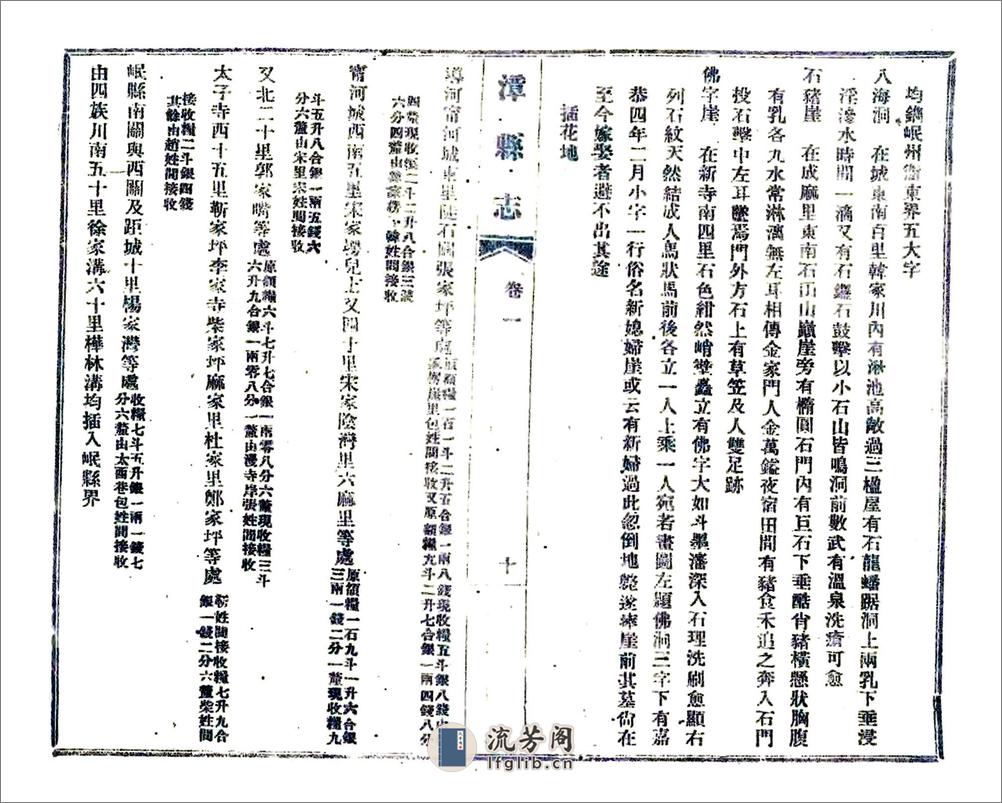 均鐫岷州衞東界五大字
八海洞　在城東南百里韓家川內有湫池高敞過三楹屋有石龍蟠踞洞上兩乳下垂浸
淫滲水時聞一滴又有石鑼石鼓擊以小石山皆鳴洞前數武有溫泉洗瘡可愈
石豬崖　在成麻里東南石山山巔崖旁有橢圓石門內有巨石下垂酷肖豬橫懸狀胸腹
有乳各九水常淋漓無左耳相傳金家門人金萬鎰夜宿田間有豬食禾追之奔入石門
投石擊中左耳墜焉門外方石上有草笠及人雙足跡
佛字崖　在新寺南四里石色紺然峭壁矗立有佛字大如斗墨瀋深入石理洗刷愈顯右
列石紋天然結成人馬狀馬前後各立一人上乘一人宛若畫圖左題佛洞三字下有嘉
恭四年二月小字一行俗名新媳婦崖或云有新婦過此忽倒地斃遂葬崖前其墓尙在
至今嫁娶者避不出其途
插花地
漳縣志
卷一
十一
導河甯河城東里陡石關張家坪等處原額糧一石一斗二升五合銀一兩八錢現收糧五斗銀八錢由
崖里包姓間接收又原額糧九斗二升七合銀一兩四錢八分
四釐現收糧二斗二升八合銀三錢
六分四釐由
韓姓間接收
甯河城西南五里宋家塄兒上又四十里宋家陰灣里六麻里等處原額糧一石九斗一升六合銀
三兩一錢二分一釐現收糧九
斗五升八合銀一兩五錢六
分六釐由宋里宋姓間接收
又北二十里郭家嘴等處原額糧六斗七升七合銀一兩零八分六釐現收糧三斗
六升九合銀一兩零八分一釐由漫寺岸張姓間接收
太子寺西十五里靳家坪李家寺柴家坪麻家里杜家里鄭家坪等處靳姓間接收糧七升九合
銀一錢二分六釐柴姓間
接收糧二斗銀四錢
其餘由趙姓間接收
岷縣南關與西關及距城十里楊家灣等處收糧七斗五升銀一兩一錢七
分六釐由太西巷包姓間接收
由四族川南五十里徐家溝六十里樺林溝均插入岷縣界
流芳阁
lfglib.cn